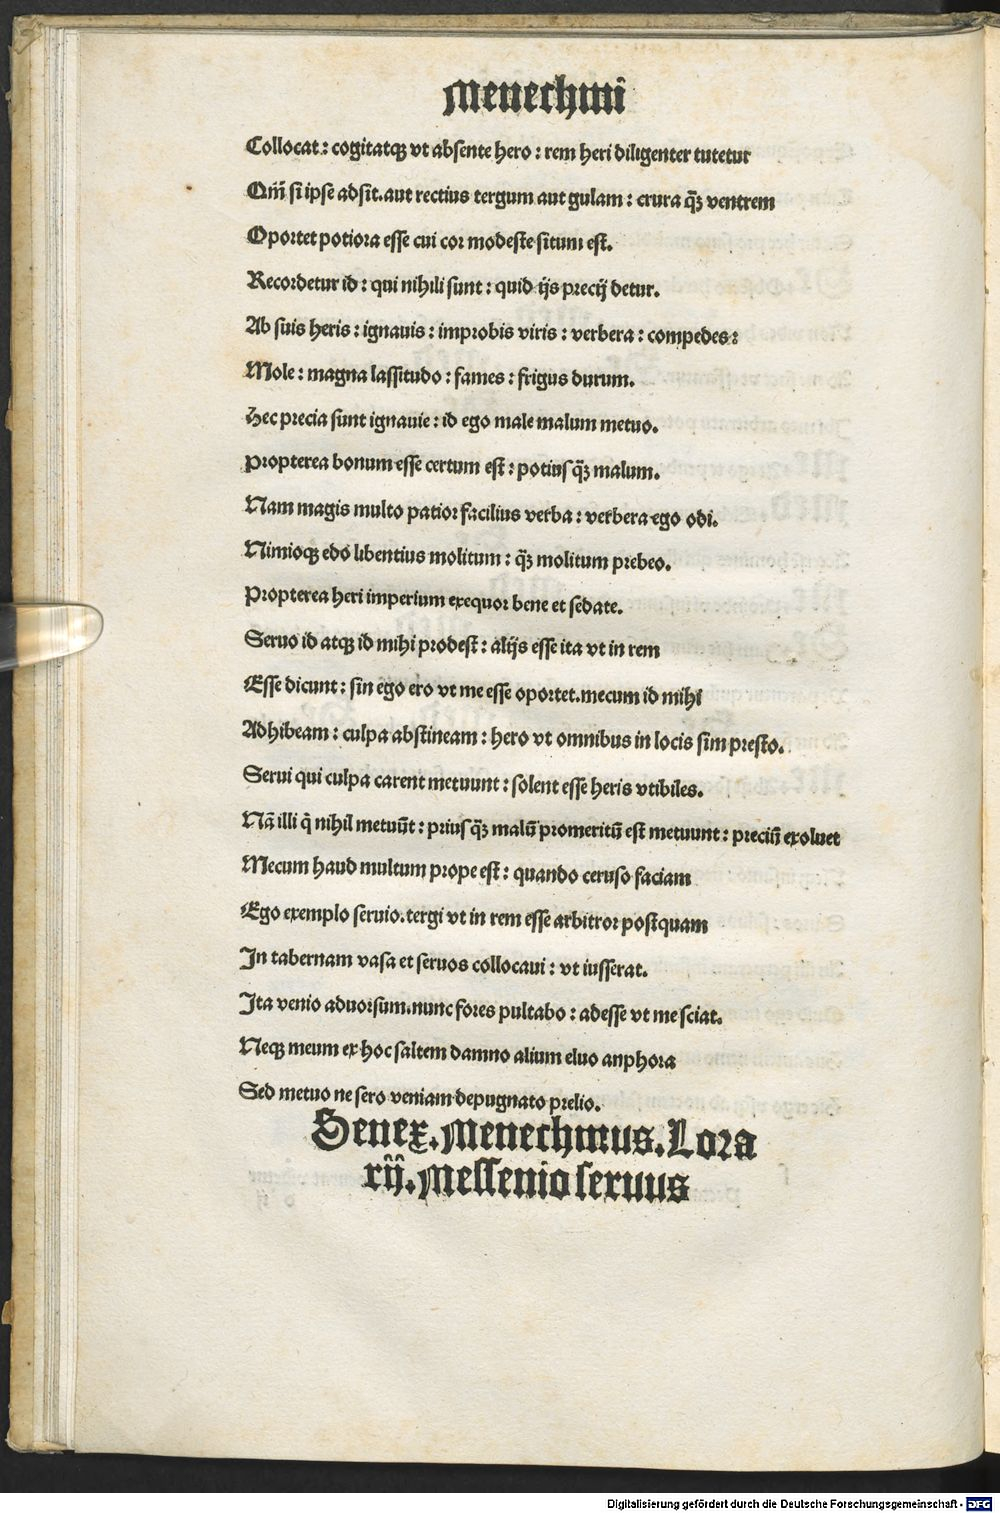 Menechmi
Collocat : cogitatqꝫ vt absente hero : rem heri diligenter tutetur
Qm̄ si ipse adsit. aut rectius tergum aut gulam : crura q̄ꝫ ventrem
Oportet potiora esse cui cor modeste situm est.
Recordetur id : qui nihili sunt : quid ijs precij detur.
Ab suis heris : ignauis : improbis viris : verbera : compedes :
Mole : magna lassitudo : fames : frigus durum.
Hec precia sunt ignauie : id ego male malum metuo.
Propterea bonum esse certum est : potius q̄ꝫ malum.
Nam magis multo patior facilius verba : verbera ego odi.
Nimioqꝫ edo libentius molitum : q̄ꝫ molitum prebeo.
Propterea heri imperium exequor bene et sedate.
Seruo id atqꝫ id mihi prodest : alijs esse ita vt in rem
Esse dicunt : sin ego ero vt me esse oportet. mecum id mihi
Adhibeam : culpa abstineam : hero vt omnibus in locis sim presto.
Serui qui culpa carent metuunt : solent esse heris vtibiles.
Nā illi q̄ nihil metuūt : prius q̄ꝫ malū promeritū est metuunt : preciū exoluet
Mecum haud multum prope est : quando ceruso faciam
Ego exemplo seruio. tergi vt in rem esse arbitror postquam
In tabernam vasa et seruos collocaui : vt iusserat.
Ita venio aduorsum. nunc fores pultabo : adesse vt me sciat.
Neqꝫ meum ex hoc saltem damno alium eluo anphora
Sed metuo ne sero veniam depugnato prelio.
Senex. Menechmus. Lora
rij. Messenio seruus
Digitalisierung gefördert durch die Deutsche Forschungsgemeinschaft - DFG